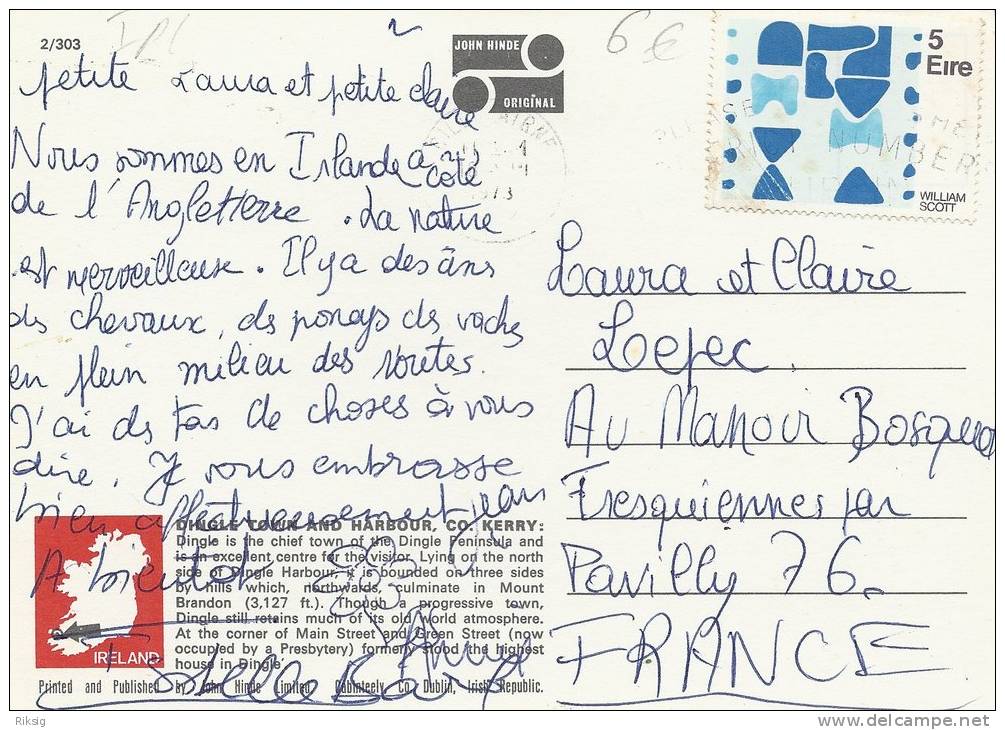 2/303
JOHN HINDE
ORIGINAL
6 €
5
Eire
WILLIAM
SCOTT
NUMBER
petite Laura et petite claire
Nous sommes en Irlande à
côté
de l'Angleterre. La nature
est merveilleuse. Il y a des âns
des chevaux, des poneys des vaches
en plein milieu des routes.
J'ai des tas de choses à vous
dire. Je vous embrasse
bien affectueusement
A bientôt
Laura et Claire
Lefec.
Au Manoir Bosquet
Fresquiennes par
Pavilly 76.
FRANCE
DINGLE TOWN AND HARBOUR, CO. KERRY:
Dingle is the chief town of the Dingle Peninsula and
is an excellent centre for the visitor. Lying on the north
side of Dingle Harbour, it is bounded on three sides
by hills which, northwards, culminate in Mount
Brandon (3,127 ft.). Though a progressive town,
Dingle still retains much of its old world atmosphere.
At the corner of Main Street and Green Street (now
occupied by a Presbytery) formerly stood the highest
house in Dingle.
IRELAND
Printed and Published by John Hinde Limited, Cabinteely Co. Dublin, Irish Republic.
Riksig
delcampe.net